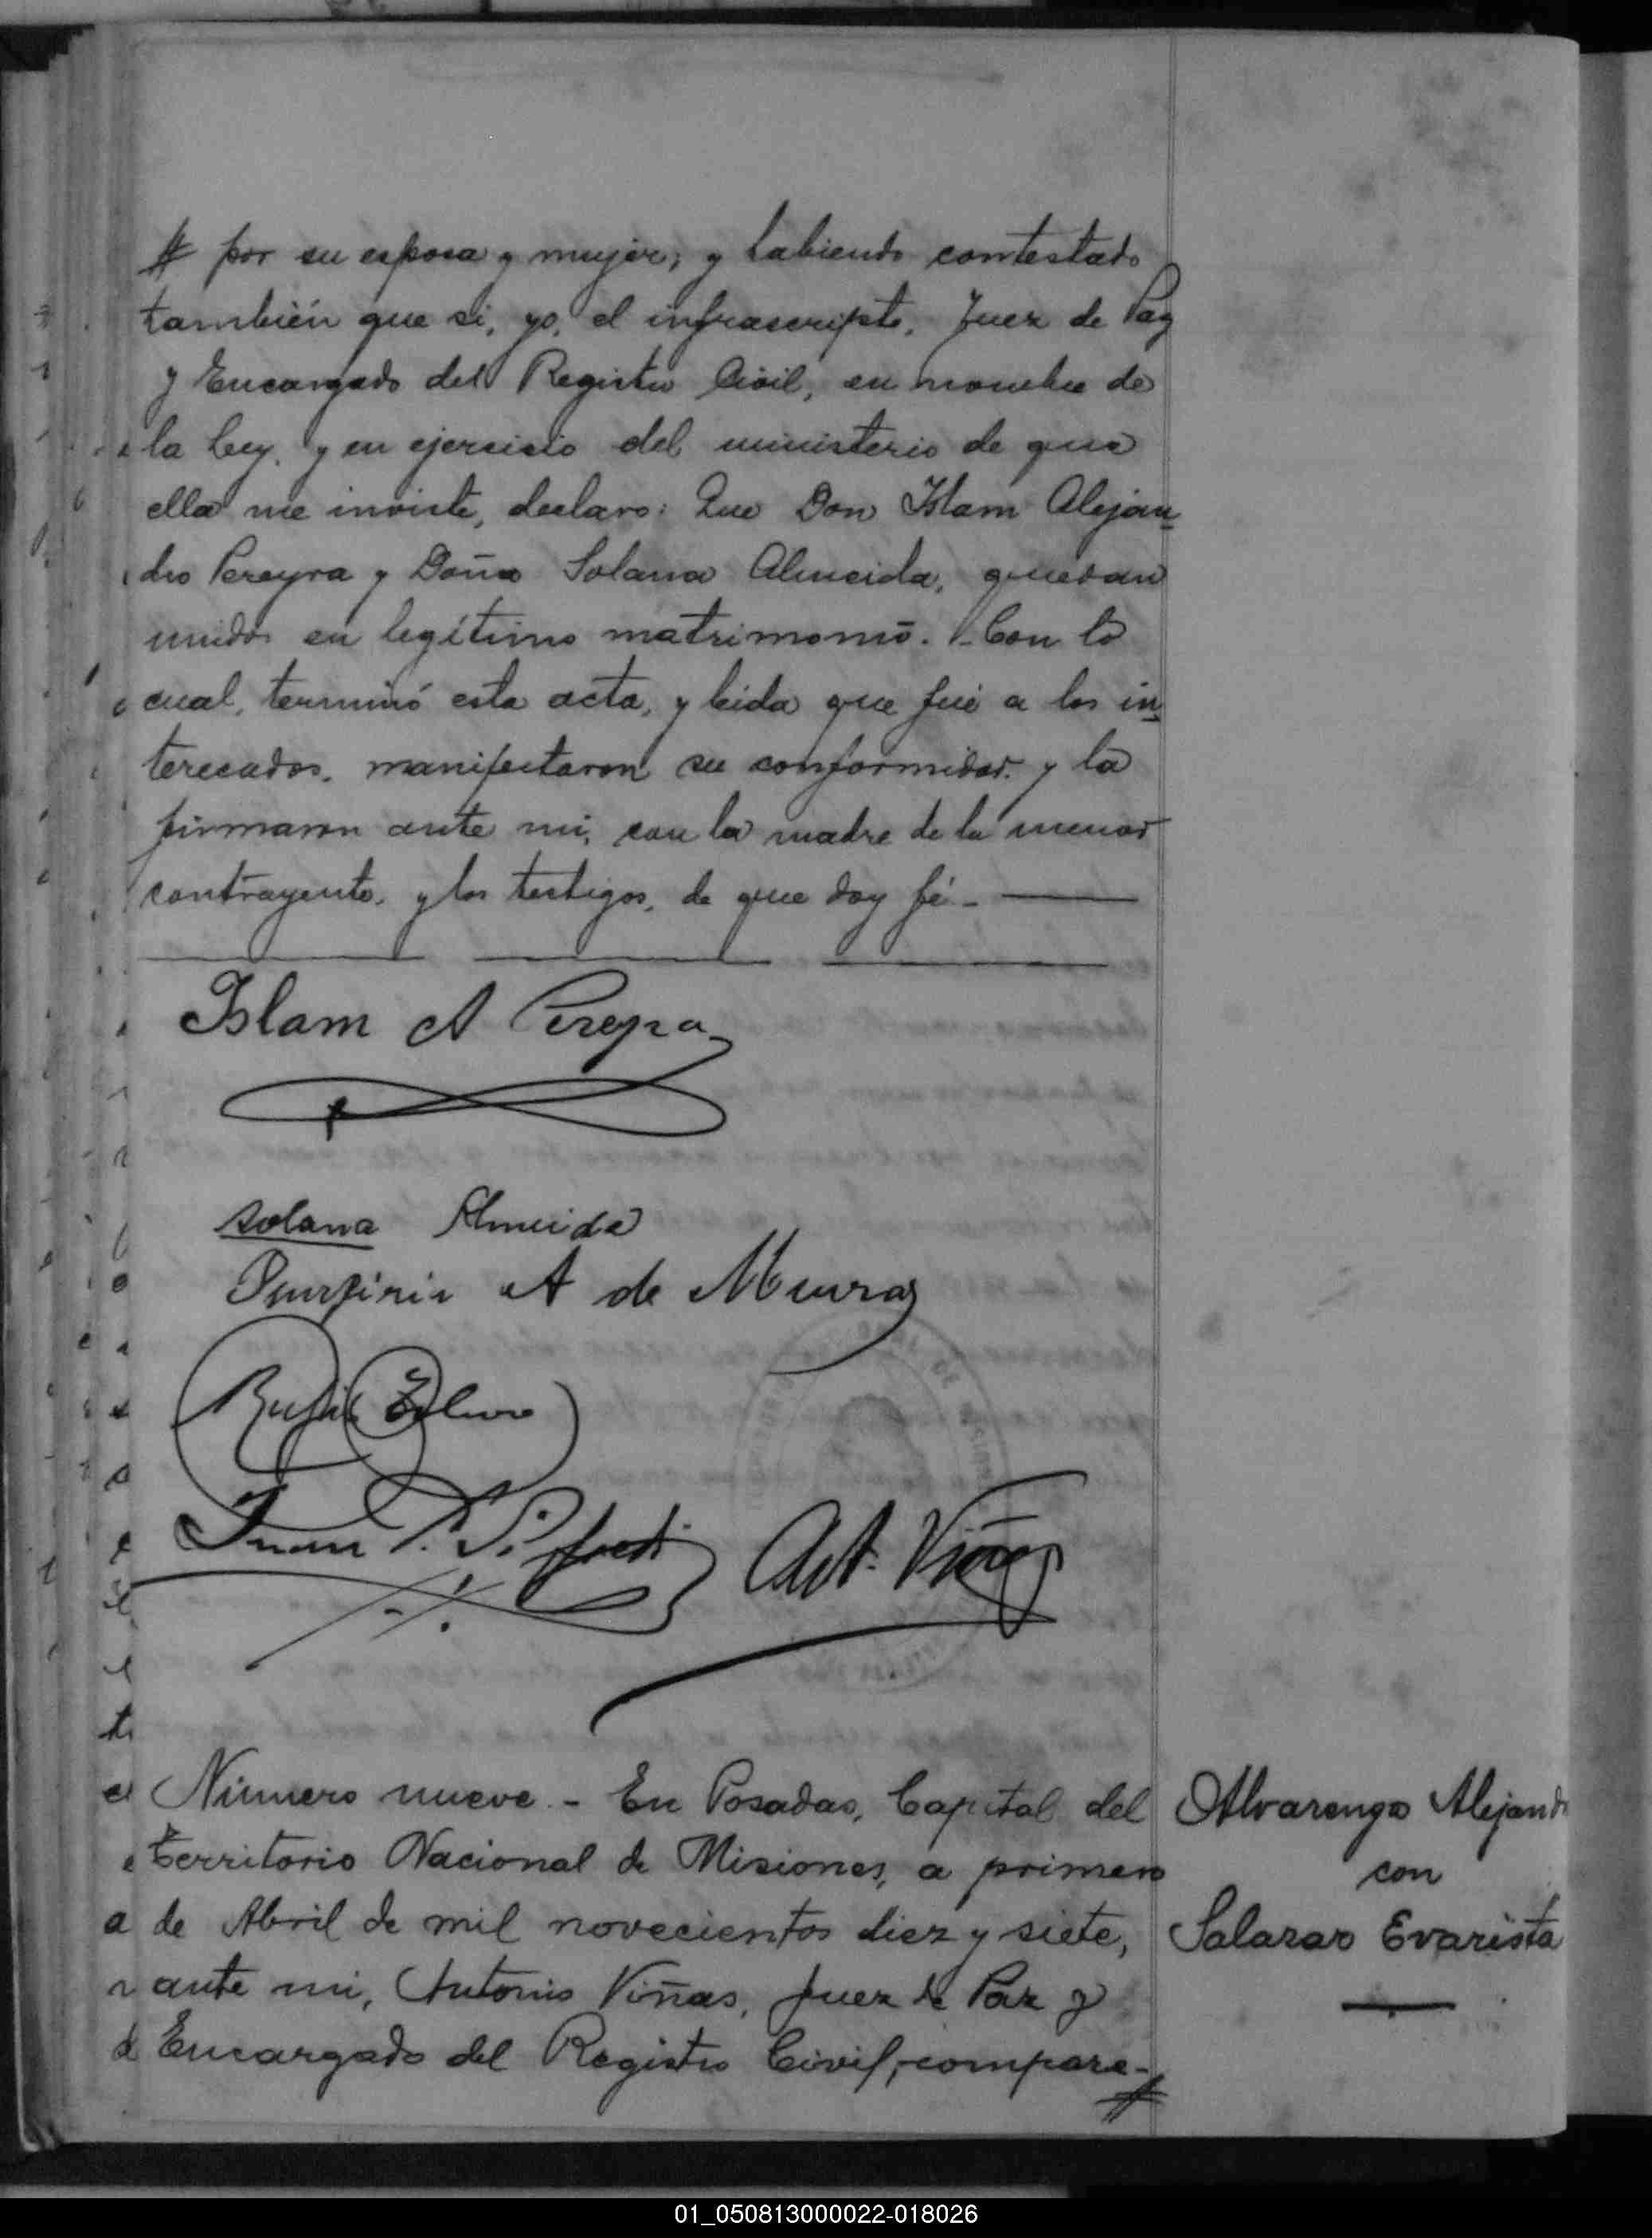 # por su esposa y mujer; y habiendo contestado
también que si, yo, el infrascripto, Juez de Paz
y Encargado del Registro Civil, en nombre de
la Ley, y en ejercicio del ministerio de que
ella me inviste, declaro: Que Don Islam Alejan_
dro Pereyra y Doña Solana Almeida, quedan
unidos en legítimo matrimonio. - Con lo
cual, terminó esta acta, y leida que fué a los in_
terecados, manifestaron su conformidad y la
firmaron ante mi, con la madre de la menor
contrayente, y los testigos, de que doy fé. -
Islam A Pereyra
solana Almeida
A de
Juan P.
Ant. Viñas
Número nueve. - En Posadas, Capital del
territorio Nacional de Misiones, a primero
de Abril de mil novecientos diez y siete,
ante mi, Antonio Viñas, Juez de Paz y
Encargado del Registro Civil, compare-
#
Alvarenga Alejand
con
Salazar Evarista
01_050813000022-018026